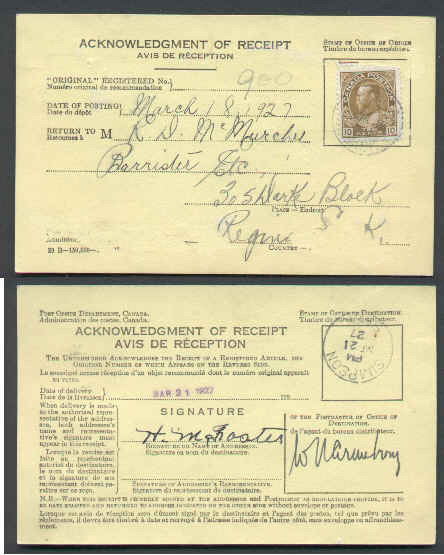 ACKNOWLEDGMENT OF RECEIPT
AVIS DE RÉCEPTION
STAMP OF OFFICE OF ORIGIN
Timbre du bureau expéditeur.
"ORIGINAL" REGISTERED NO.
Numéro original de recommandation
900
CANADA POSTAGE
10 10
DATE OF POSTING
Date du dépôt
March 18, 1927
RETURN TO M
Retournez à
R. D. McMurchie
Barrister Etc
305 Dark Block
PLACE—Endroit
Regina
COUNTRY—
29 B—150,000—
POST OFFICE DEPARTMENT, CANADA.
Administration des postes, Canada.
STAMP OF OFFICE OF DESTINATION.
Timbre du bureau distributeur.
ACKNOWLEDGMENT OF RECEIPT
AVIS DE RÉCEPTION
SIMPSON
PM
21
27
THE UNDERSIGNED ACKNOWLEDGES THE RECEIPT OF A REGISTERED ARTICLE, THE
ORIGINAL NUMBER OF WHICH APPEARS ON THE REVERSE SIDE.
Le soussigné accuse réception d'un objet recommandé dont le numéro original apparaît
au verso.
Date of delivery
Date de la livraison
MAR 21 1927
192
When delivery is made
to the authorized repre-
sentative of the
address, both addressee's
name and representa-
tive's signature must
appear in the receipt.
Lorsque la remise est
faite au représentant
autorisé du destinataire,
le nom du destinataire
et la signature de son
représentant doivent pa-
raître sur ce reçu.
SIGNATURE
H. McFoster
SIGNATURE OR NAME OF ADDRESSEE.
Signature ou nom du destinataire.
SIGNATURE OF ADDRESSEE'S REPRESENTATIVE.
Signature du représentant du destinataire.
OF THE POSTMASTER OF OFFICE OF
DESTINATION.
de l'agent du bureau distributeur.
N.B.—WHEN THIS RECEIPT IS PROPERLY SIGNED BY THE ADDRESSEE AND POSTMASTER AS REGULATIONS PROVIDE, IT IS TO
BE DATE STAMPED AND RETURNED TO ADDRESS INDICATED ON THE OTHER SIDE without envelope or postage.
Lorsque cet avis de réception sera dûment signé par le destinataire et l'agent des postes, tel que prévu par les
règlements, il devra être timbré à date et renvoyé à l'adresse indiquée de l'autre côté, sans enveloppe ou affranchisse-
ment.